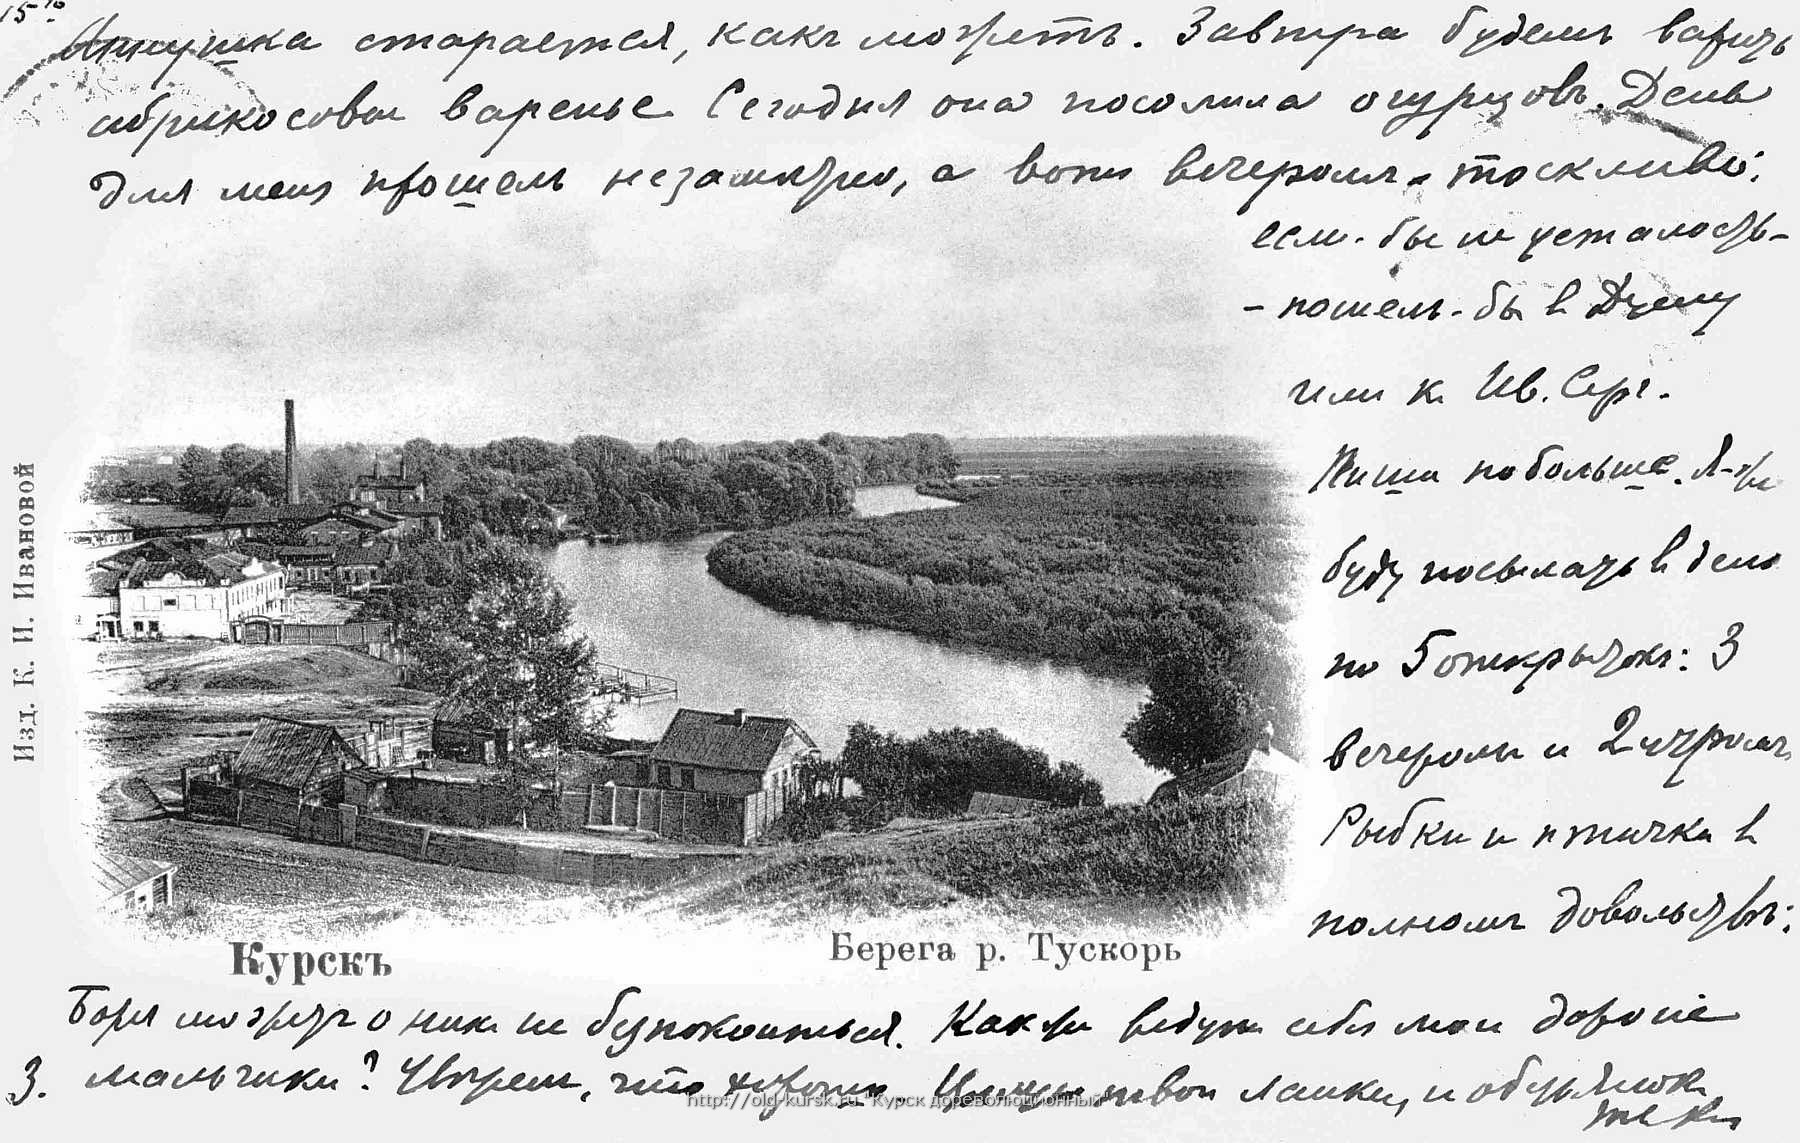 15го
Аннушка старается, какъ можетъ. Завтра будемъ варить
абрикосовое варенье. Сегодня она посолила огурцовъ. День
для меня прошелъ незамѣтно, а вотъ вечеромъ - тоскливо:
если-бы не усталость-
- пошелъ-бы в Думу
или к Ив. Серг.
Пиши побольше. Я-же
буду посылать в день
по 5 открытокъ: 3
вечеромъ и 2 утромъ.
Рыбки и птичка в
полномъ довольствѣ:
Изд. К. И. Ивановой
Курскъ
Берега р. Тускорь
Боря можетъ о них не безпокоиться. Как же ведут себя мои дорогіе
3. мальчики? Увѣрен, что хорошо. Цѣлую твои лапки, и обезьянок
также
http://old-kursk.ru "Курск дореволюционный"